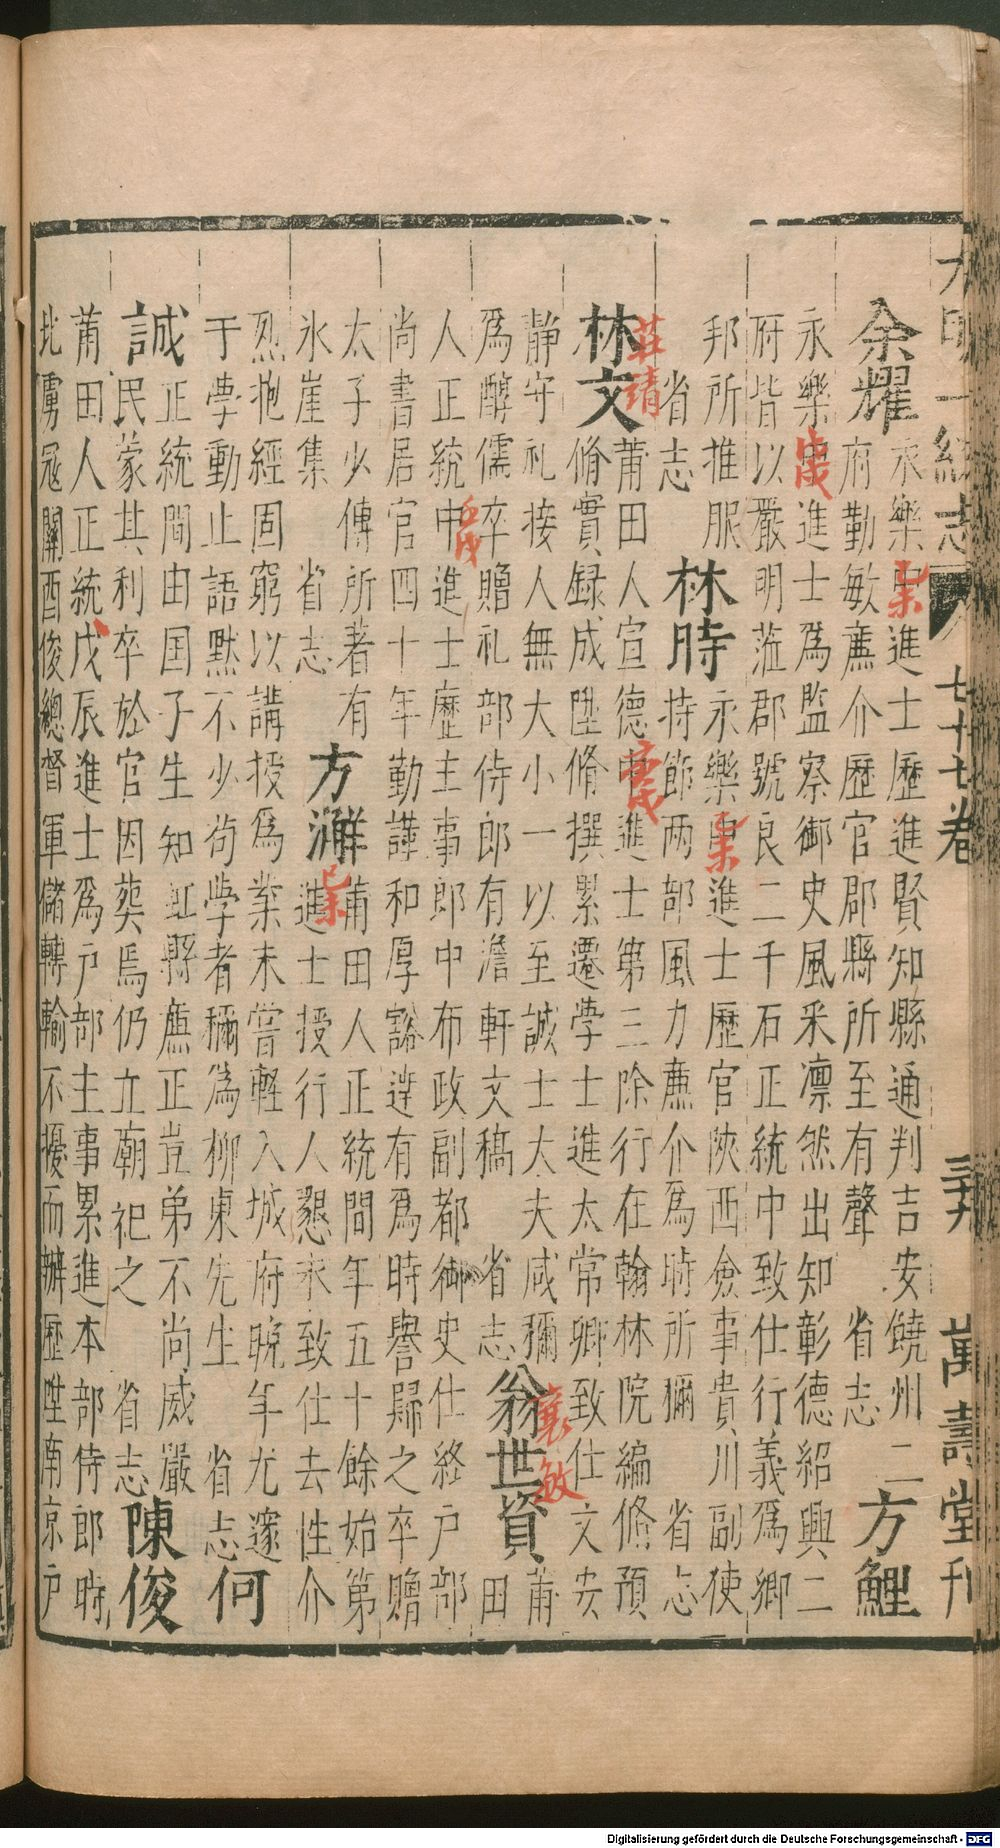 大明一統志 七十七卷 萬壽堂刊
余耀
永樂中進士歷進賢知縣通判吉安饒州二
己未
府勤敏廉介歷官郡縣所至有聲 省志
方鯉
永樂中進士爲監察御史風采凛然出知彰德紹興二
戊戌
府皆以嚴明蒞郡號良二千石正統中致仕行義爲鄉
邦所推服
省志
林時
永樂中進士歷官陝西僉事貴川副使
己未
持節两部風力亷介爲時所稱 省志
林文
莊靖
莆田人宣德中進士第三除行在翰林院編脩預
庚戌
脩實録成陞脩撰累遷學士進太常卿致仕文安
静守礼接人無大小一以至誠士大夫咸稱
爲醇儒卒贈礼部侍郎有澹軒文稿 省志
翁世資
襄敏
莆田
人正統中進士歷主事郎中布政副都御史仕終户部
壬戌
尚書居官四十年勤謹和厚豁達有爲時譽歸之卒贈
太子少傅所著有
氷崖集 省志
方澥
莆田人正統間年五十餘始第
進士授行人懇求致仕去性介
己未
烈抱經固窮以講授爲業未嘗輕入城府晩年尤邃
于學動止語默不少苟學者稱爲柳東先生 省志
何誠
正統間由国子生知虹縣亷正豈弟不尚威嚴
民蒙其利卒於官因葬焉仍立廟祀之 省志
陳俊
莆田人正統戊辰進士爲户部主事累進本部侍郎時
北虜冦關酉俊總督軍儲轉輸不擾而辦歷陞南京户
Digitalisierung gefördert durch die Deutsche Forschungsgemeinschaft - DFG